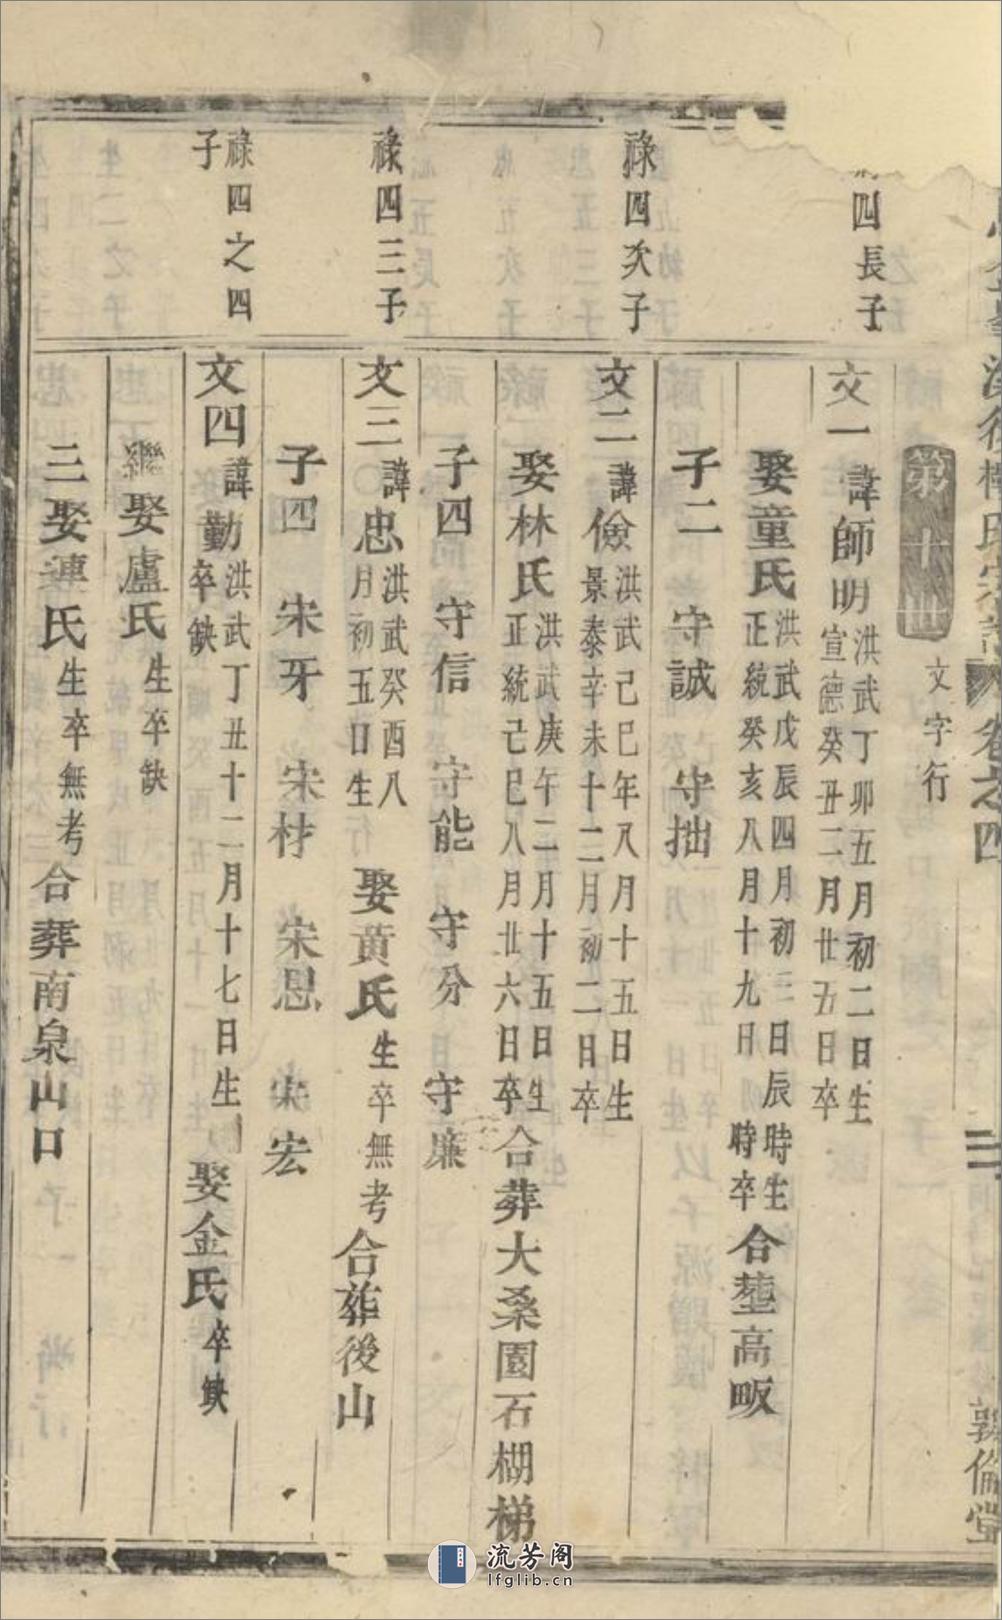 卷之四
敦倫堂
第十世 文字行
四長子
文一 諱師明 洪武丁卯五月初二日生 宣德癸丑二月廿五日卒
娶童氏 洪武戊辰四月初三日辰時生 正統癸亥八月十九日時卒 合塟高畈
子二 守誠 守拙
祿四次子
文二 諱儉 洪武己巳年八月十五日生 景泰辛未十二月初二日卒
娶林氏 洪武庚午二月十五日生 正統己巳八月廿六日卒 合葬大桑園石楜梯
子四 守信 守能 守分 守廉
祿四三子
文三 諱忠 洪武癸酉八月初五日生 娶黄氏 生卒無考 合葬後山
子四 宋牙 宋材 宋恩 宋宏
祿四之四子
文四 諱勤 洪武丁丑十二月十七日生 卒缺 娶金氏 卒缺
繼娶盧氏 生卒缺
三娶連氏 生卒無考 合葬南泉山口
流芳阁
lfglib.cn